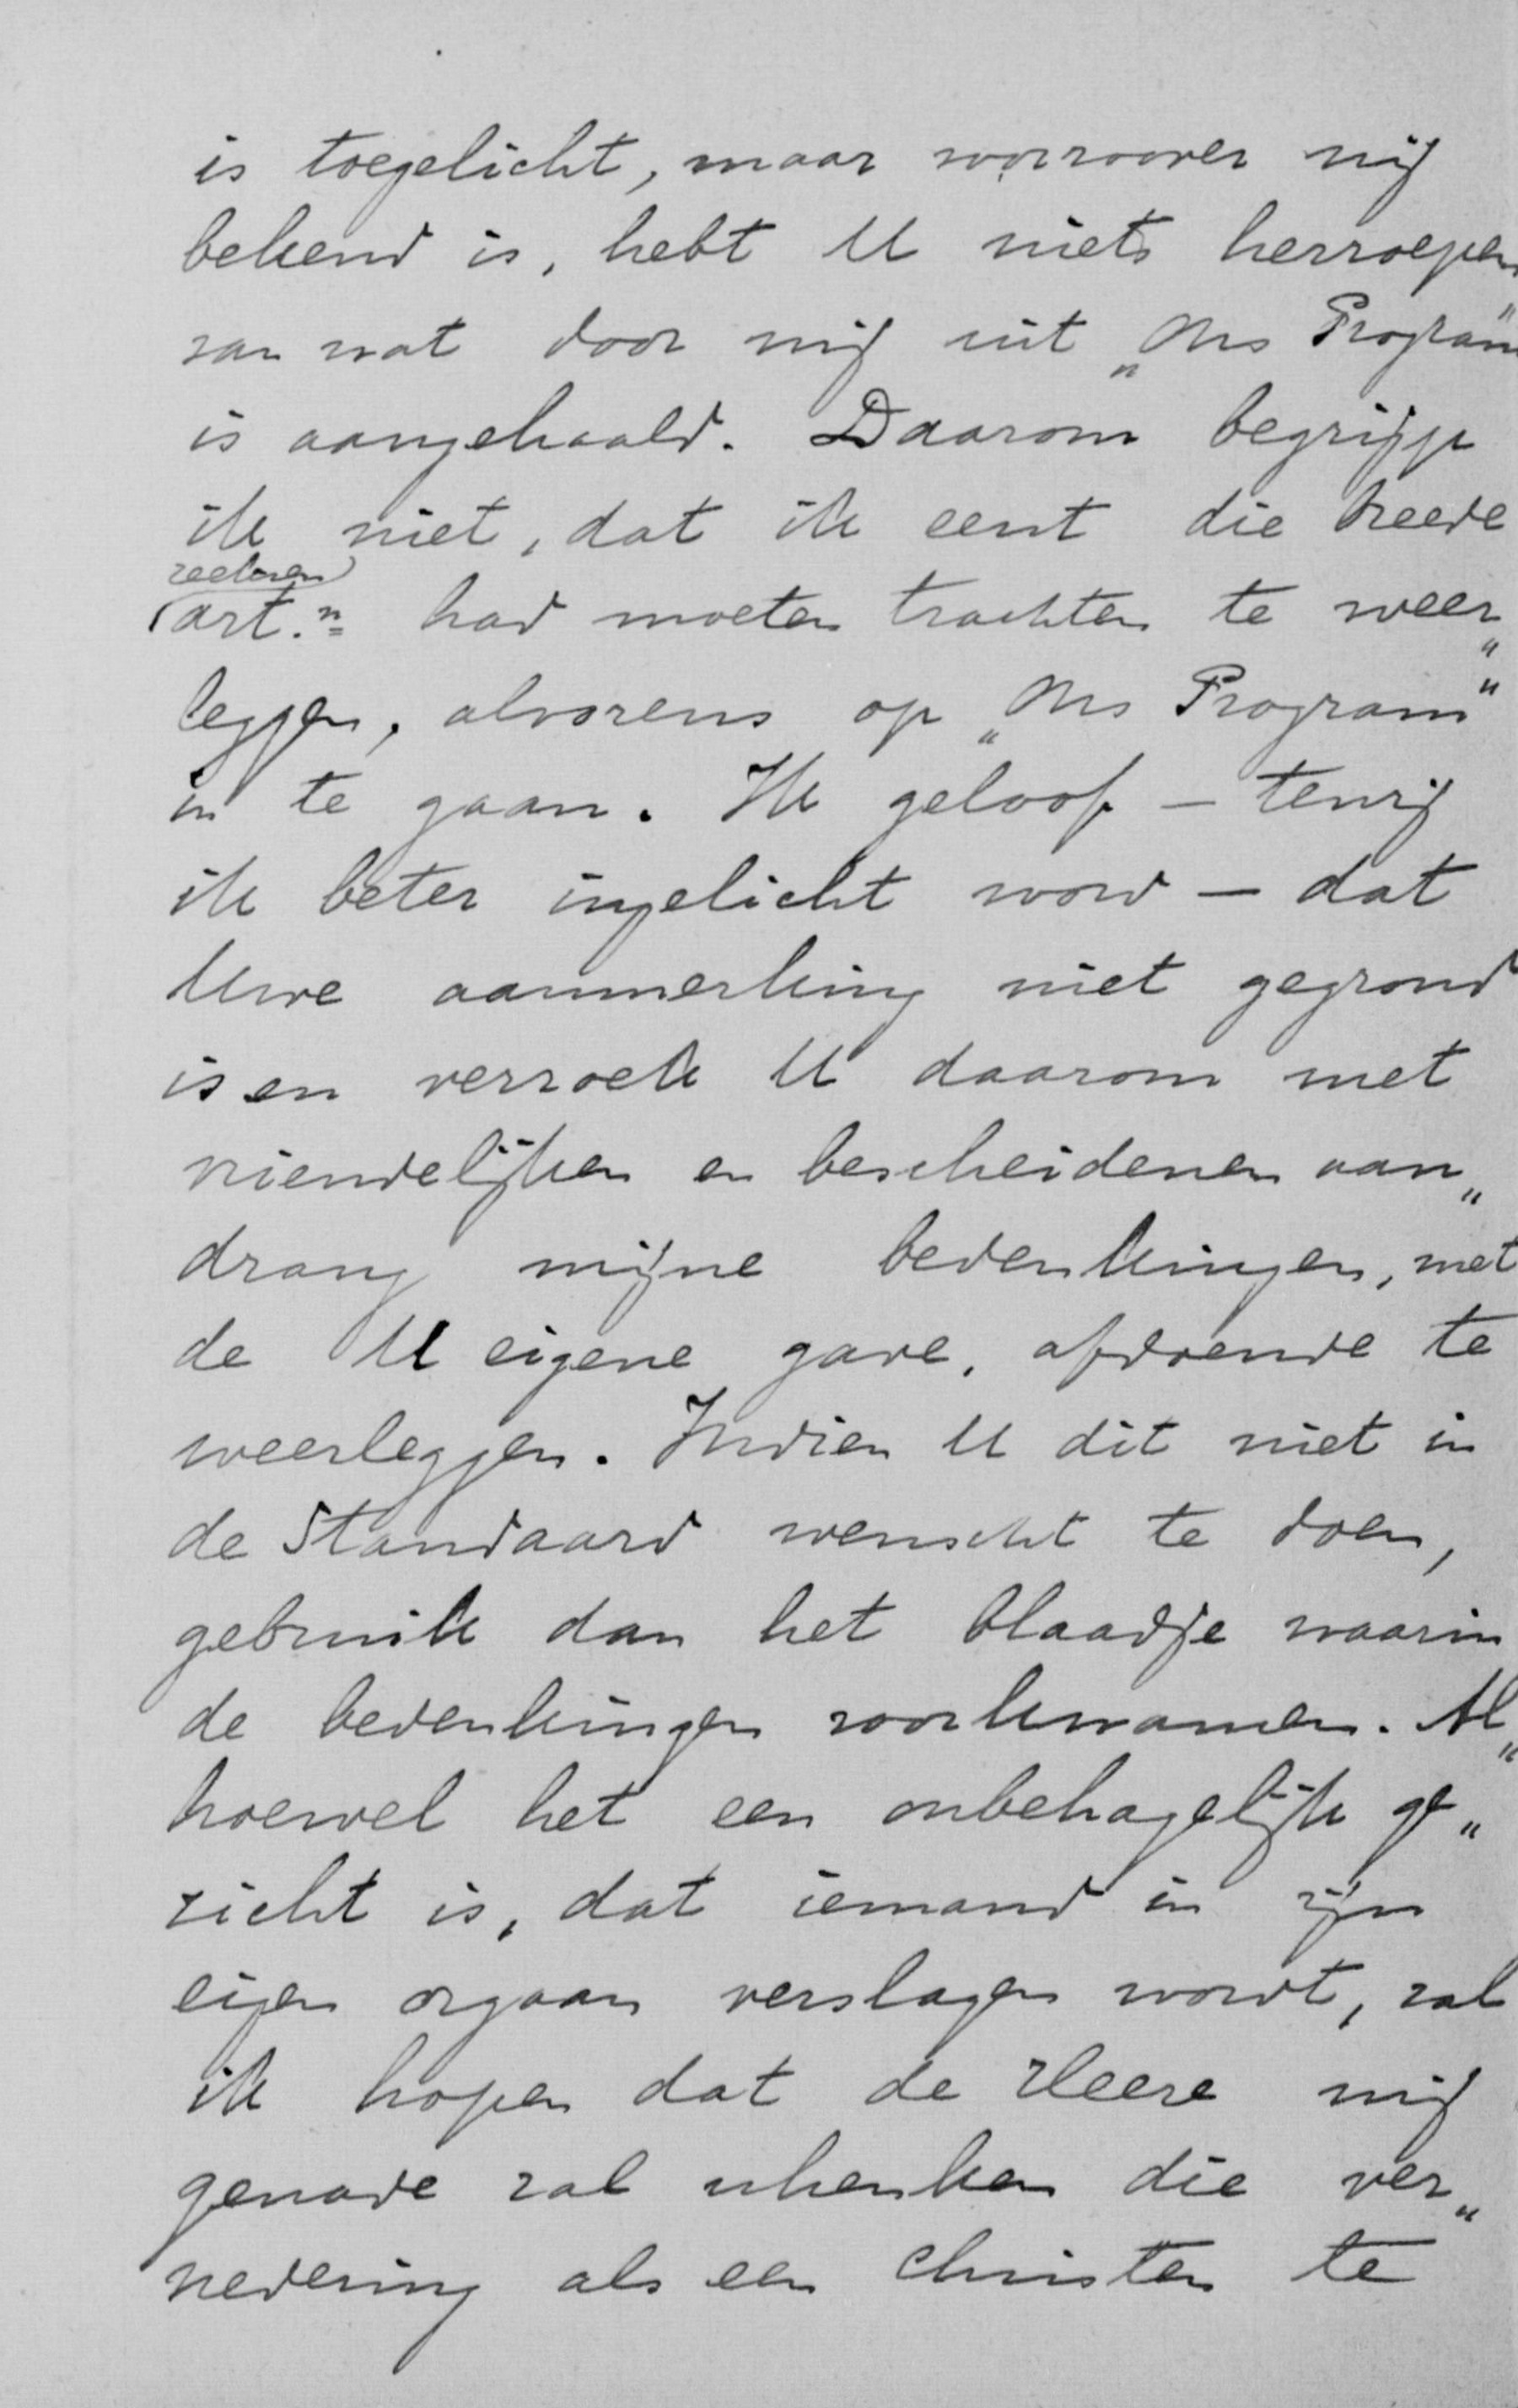 is toegelicht, maar voorzoover mij
bekend is, hebt U niets herroepen
van wat door mij uit „Ons Program"
is aangehaald. Daarom begrijp
ik niet, dat ik eerst die breede
art.n had moeten trachten te weer„
leggen, alvorens op „Ons Program"
in te gaan. Ik geloof — tenzij
ik beter ingelicht word — dat
Uwe aanmerking niet gegrond
is en verzoek U daarom met
vriendelijken en bescheidenen aan„
drang mijne bedenkingen, met
de U eigene gave, afdoende te
weerleggen. Indien U dit niet in
de Standaard wenscht te doen,
gebruik dan het blaadje waarin
de bedenkingen voorkwamen. Al„
hoewel het een onbehagelijk ge„
zicht is, dat iemand in zijn
eigen orgaan verslagen wordt, zal
ik hopen dat de Heere mij
genade zal schenken die ver„
nedering als een Christen te